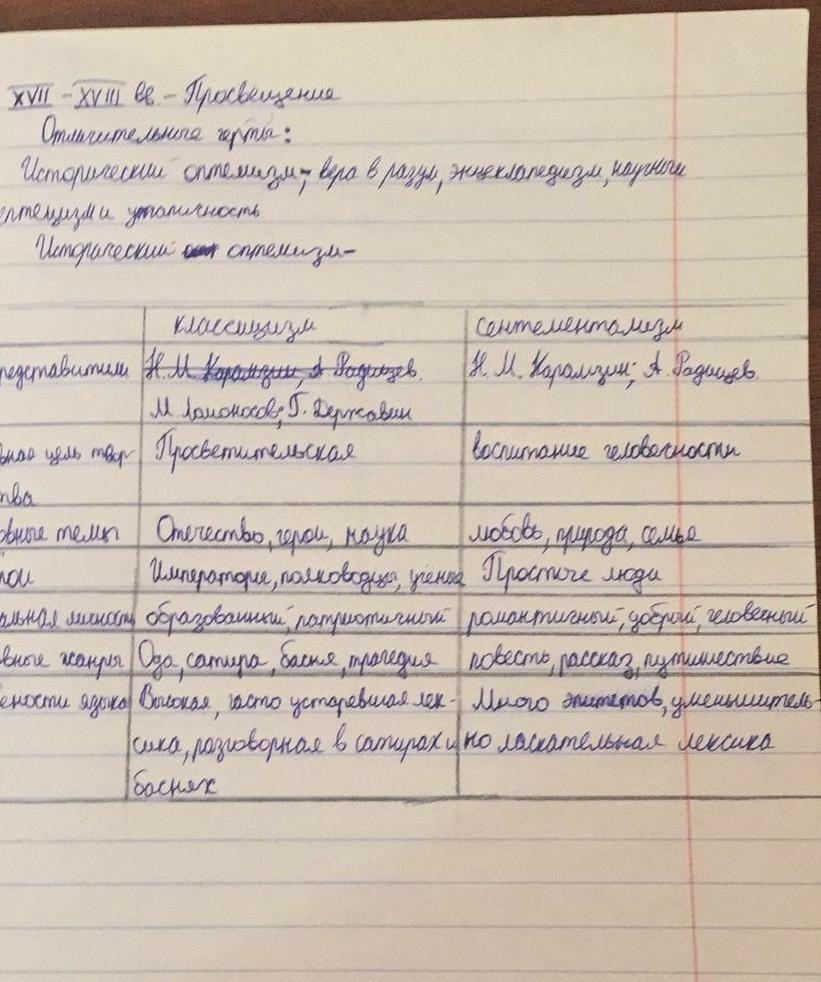 XVII - XVIII вв - Просвещение
Отличительные черты:
Исторический оптемизм-, вера в разум, энцеклапедизм, научный
ептецизм и утопичность
Исторический оптемизм-
классицизм сентементализм
редставители Н.М Карамзин, А Радищев. Н. М. Карамзин; А. Радищев.
М Ломоносов; Г. Державин
вная цель твор- Просветительская воспитание человечности
тва
овные темы Отечество, герои, наука любовь, природа, семья
рои Императоры, полководцы, учёные Простые люди
альная личность образованный, патриотичный романтичный, добрый, человечный
вные жанры Ода, сатира, басня, трагедия повесть, рассказ, путишествие
енности языка Высокая, часто устаревшая лек- Много эпитетов, уменьшитель-
сика, разговорная в сатирах и но ласкательная лексика
баснях